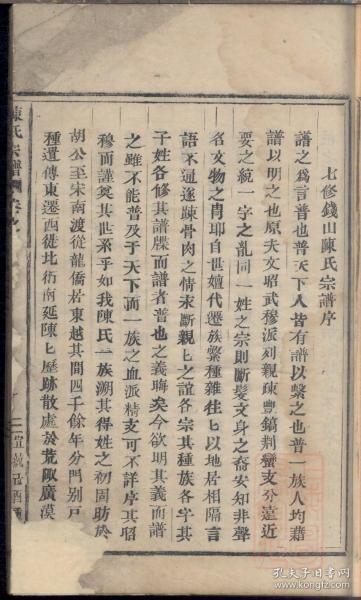 七修錢山陳氏宗譜序
譜之爲言普也普天下人皆有譜以繫之也普一族人均藉
譜以明之也原夫文昭武穆派列親疎豐鎬荆蠻支分遠近
要之統一字之亂同一姓之宗則斷髮文身之裔安知非聲
名文物之胄耶自世嬗代遷族繁種雜往匕以地居相隔言
語不通遂疎骨肉之情未斷親匕之誼各宗其種族各字其
子姓各修其譜牒而譜者普也之義晦矣今欲明其義而譜
之雖不能普及于天下而一族之血派精支可不詳序其昭
穆而謹奠其世系乎如我陳氏一族溯其得姓之初固昉於
胡公至宋南渡從龍僑居東越其間四千餘年分門别戸
種遺傳東遷西徙北衍南延陳匕歷跡散處於荒陬廣漠
陳氏宗譜
宣
孔夫子旧书网